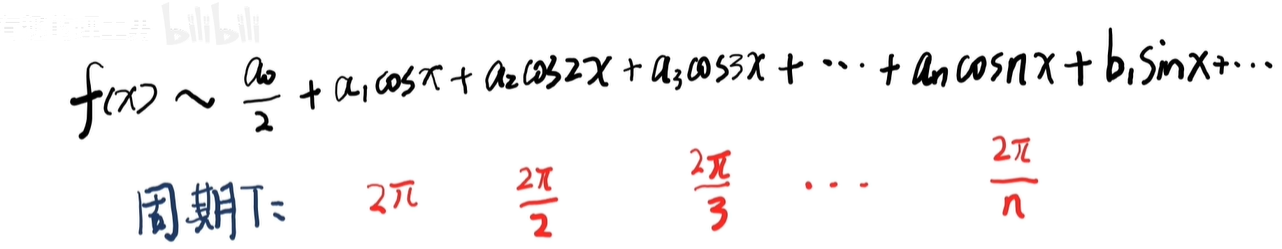 bilibili
f(x) ~ a₀/2 + a₁cosx + a₂cos2x + a₃cos3x + ··· + aₙcosnx + b₁sinx+···
周期T: 2π 2π/2 2π/3 ··· 2π/n